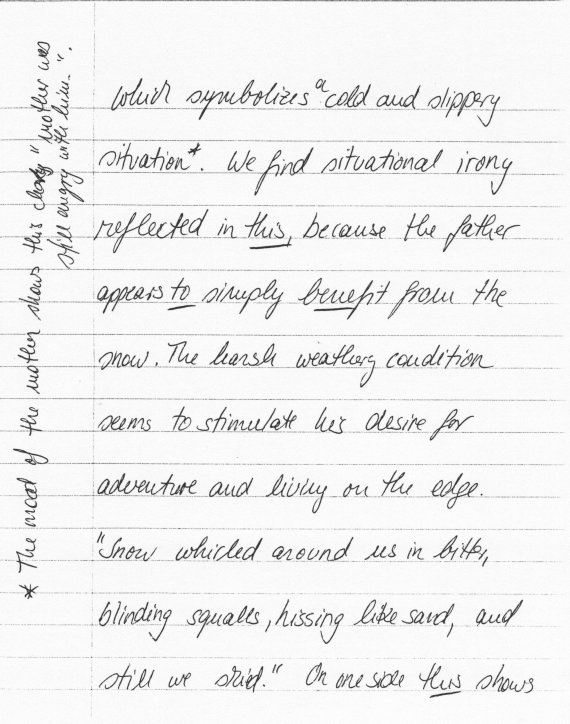 which symbolizes a cold and slippery
situation*. We find situational irony
reflected in this, because the father
appears to simply benefit from the
snow. The harsh weatherg condition
seems to stimulate his desire for
adventure and living on the edge.
"Snow whirled around us in bitter,
blinding squalls, hissing like sand, and
still we skied." On one side this shows
* The mood of the mother shows this "mother was
still angry with him.".